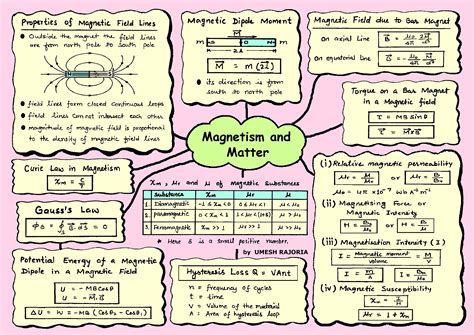 Properties of Magnetic Field Lines
Outside the magnet the field lines
are from north pole to south pole
field lines form closed continuous loops
field lines cannot intersect each other
magnitude of magnetic field is proportional
to the density of magnetic field lines
Magnetic Dipole Moment
M = m (2l)
its direction is from
south to north pole
Magnetic Field due to Bar Magnet
on axial Line
on equatorial line
Torque on a Bar Magnet
in a Magnetic field
τ = MB sin θ
τ = M × B
Magnetism and
Matter
Curie Law in Magnetism
χm = C/T
Gauss's Law
ΦB = ∮ B. ds = 0
χm, μr and μ of Magnetic Substances
Substance χm μr μ
1. Diamagnetic -1 ≤ χm < 0 0 ≤ μr < 1 μ < μ0
2. Paramagnetic
3. Ferromagnetic χm >> 1 μr >> 1 μ >> μ0
* Here ε is a small positive number.
by UMESH RAJORIA
(i) Relative magnetic permeability
(ii) Magnetising Force or
Magnetic Intensity
(iii) Magnetisation Intensity (I)
I = Magnetic moment / volume
(iv) Magnetic Susceptibility
χm = I/H
μr = 1 + χm
Potential Energy of a Magnetic
Dipole in a Magnetic Field
U = - MB Cosθ
U = - M. B
ΔU = W = - MB (Cosθ2 - Cosθ1)
Hysteresis Loss Q = VAnt
n = frequency of cycles
t = time
V = Volume of the material
A = Area of hysteresis loop